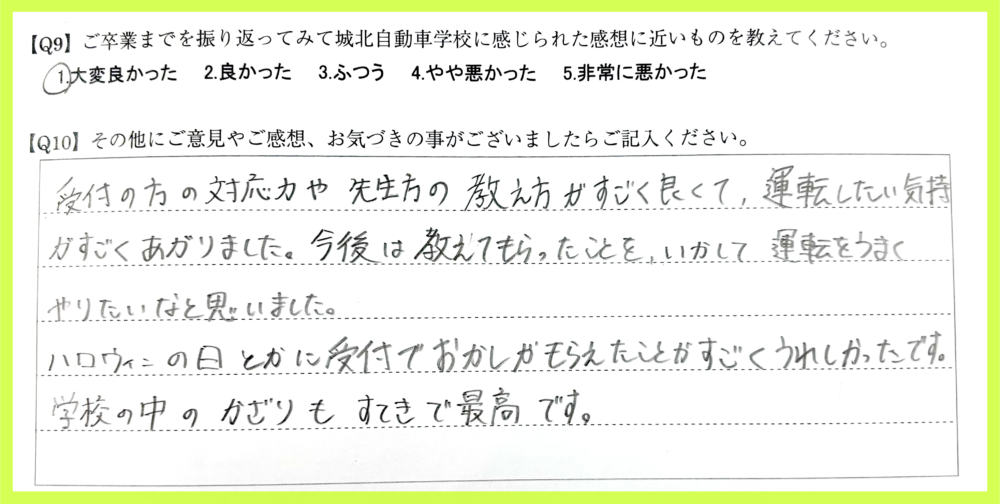 【Q9】ご卒業までを振り返ってみて城北自動車学校に感じられた感想に近いものを教えてください。
1.大変良かった 2.良かった 3.ふつう 4.やや悪かった 5.非常に悪かった
【Q10】その他にご意見やご感想、お気づきの事がございましたらご記入ください。
受付の方の対応力や先生方の教え方がすごく良くて、運転したい気持
がすごくあがりました。今後は教えてもらったことを、いかして運転をうまく
やりたいなと思いました。
ハロウィンの日とかに受付でおかしがもらえたことがすごくうれしかったです。
学校の中のかざりもすてきで最高です。